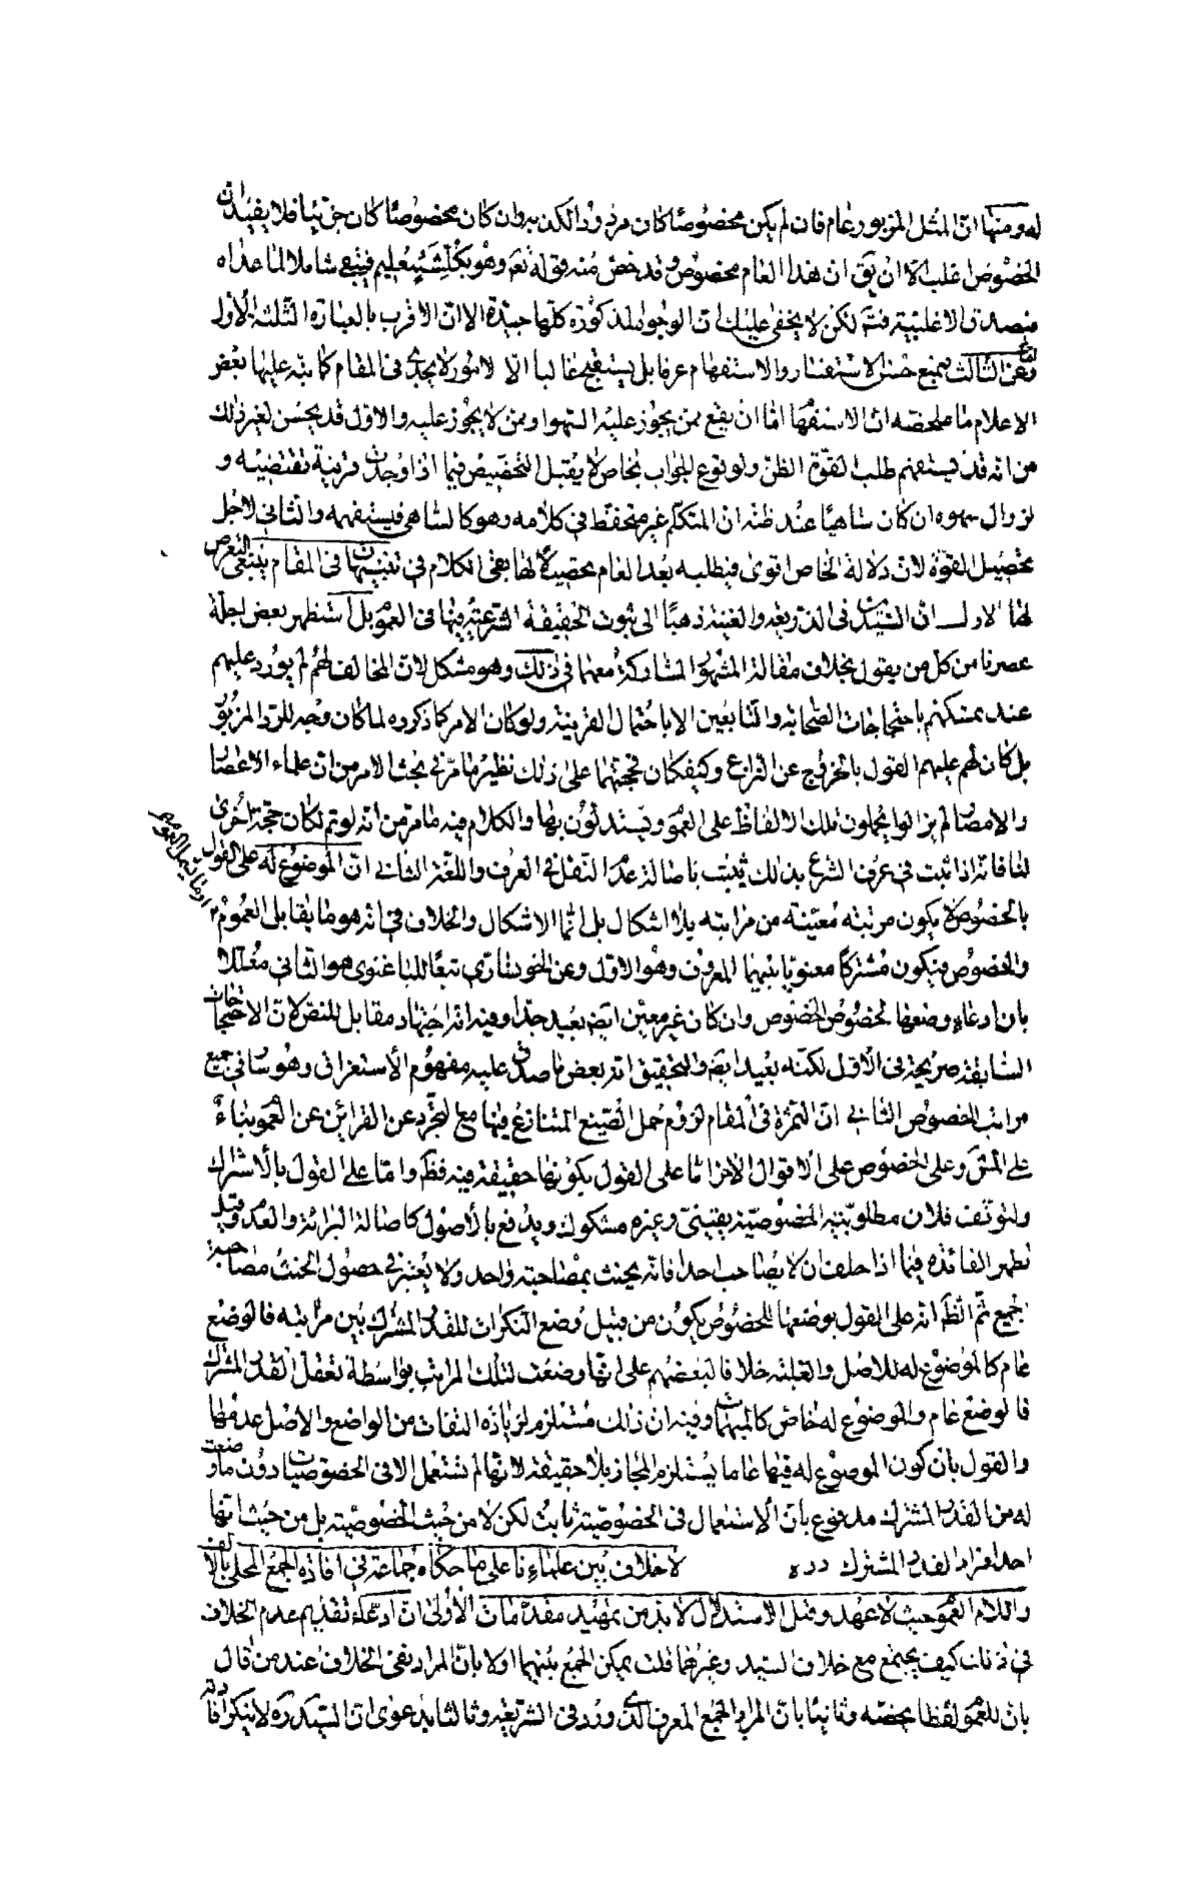 له ومنها ان المثل المزبور عام فان لم يكن مخصوصا كان مردودا لكذبه وان كان مخصوصا كان جزئيا فلا يفيد ان
الخصوص اغلب الا ان يق ان هذا العام مخصوص وقد خص منه قوله نعم وهو بكل شيء عليم فيبقى شاملا لما عداه
فيصدق الاغلبية فتم لكن لا يخفى عليك ان الوجوه المذكورة كلها جيدة الا ان الاقرب بالعبارة الثلثة الاول
وعن الثالث بمنع حسن الاستفسار والاستفهام عرفا بل يستقبح غالبا الا لامور لا يجدي في المقام كما نبه عليها بعض
الاعلام ما ملخصه ان الاستفهام اما ان يقع ممن يجوز عليه السهو او ممن لا يجوز عليه والاول قد يحسن لغير ذلك
من انه قد يستفهم طلب القوة الظن ولوقوع الجواب بخاص لا يقبل التخصيص فيما اذا وجدت قرينة تقتضيه و
لزوال سهوه ان كان ساهيا عند ظنه ان المتكلم غير متحفظ في كلامه وهو كالساهي فيستفهمه والثاني لاجل
تحصيل القوة لان دلالة الخاص اقوى فيطلبه بعد العام تحصيلا لها بقى الكلام في تنبيهات في المقام ينبغي التعرض
لها الاول ان السيدين في الذريعة والغنية ذهبا الى ثبوت الحقيقة الشرعية فيها في العموم بل استظهر بعض اجلة
عصرنا من كل من يقول بخلاف مقالة المشهور المشاركة معهما في ذلك وهو مشكل لان المخالف لهم لم يورد عليهم
عند تمسكهم باحتجاجات الصحابة والتابعين الا باحتمال القرينة ولو كان الامر كما ذكروه لما كان وجه للرد المزبور
بل كان لهم عليهم القول بالخروج عن النزاع وكيف كان فحجتهما على ذلك نظير ما مر في بحث الامر من ان علماء الاعصار
والامصار لم يزالوا يحملون تلك الالفاظ على العموم ويستدلون بها والكلام فيه ما مر من انه لو تم لكان حجة اخرى
لنا فانه اذا ثبت في عرف الشرع بذلك يثبت باصالة عدم النقل في العرف واللغة الثاني ان الموضوع له على القول
بالخصوص لا يكون مرتبة معينة من مراتبه بلا اشكال بل انما الاشكال والخلاف في انه هو ما يقابل العموم
والخصوص فيكون مشتركا معنويا بينهما المعروف وهو الاول وعن الخونساري تبعا للباغنوي هو الثاني معللا
بان ادعاء وضعها لخصوص الخصوص وان كان غير معين ايض بعيد جدا وفيه انه اجتهاد مقابل للنص لان الاحتجاجات
السابقة صريحة في الاول لكنه بعيد ايض والتحقيق انه بعض ما صدق عليه مفهوم الاستغراق وهو سار في جميع
مراتب الخصوص الثاني ان الثمرة في المقام لزوم حمل الصيغ المتنازع فيها مع التجرد عن القرائن عن العموم بناء
على المش وعلى الخصوص على الاقوال الاخر اما على القول بكونها حقيقة فيه فظ واما على القول بالاشتراك
والتوقف فلان مطلوبية الخصوصية يقيني وغيره مشكوك ويدفع بالاصول كاصالة البرائة والعدم وقيل
تظهر الفائدة فيما اذا حلف ان لا يصاحب احدا فانه يحنث بمصاحبة واحد ولا يعتبر في حصول الحنث مصاحبة
الجميع ثم الظ انه على القول بوضعها للخصوص يكون من قبيل وضع النكرات للقدر المشترك بين مراتبه فالوضع
عام كالموضوع له للاصل والغلبة خلافا لبعضهم على انها وضعت لتلك المراتب بواسطة تعقل القدر المشترك
فالوضع عام والموضوع له خاص كالمبهمات وفيه ان ذلك مستلزم لزيادة التفات من الواضع والاصل عدمها
والقول بان كون الموضوع له فيها عاما يستلزم المجاز بلا حقيقة لانها لم تستعمل الا في الخصوصيات دون ما وضعت
له من القدر المشترك مدفوع بان الاستعمال في الخصوصية ثابت لكن لا من حيث الخصوصية بل من حيث انها
احد افراد القدر المشترك درة لا خلاف بين علماءنا على ما حكاه جماعة في افادة الجمع المحلى بالالف
واللام العموم حيث لا عهد وقبل الاستدلال لا بد من تمهيد مقدمات الاولى ان ادعاء تقديم عدم الخلاف
في ذلك كيف يجتمع مع خلاف السيد وغيرهما قلت يمكن الجمع بينهما اولا بان المراد بنفي الخلاف عند من قال
بان للعموم لفظا يخصه وثانيا بان المراد الجمع المعرف الذي ورد في الشريعة وثالثا بدعوى ان السيد ره لا ينكر افادته